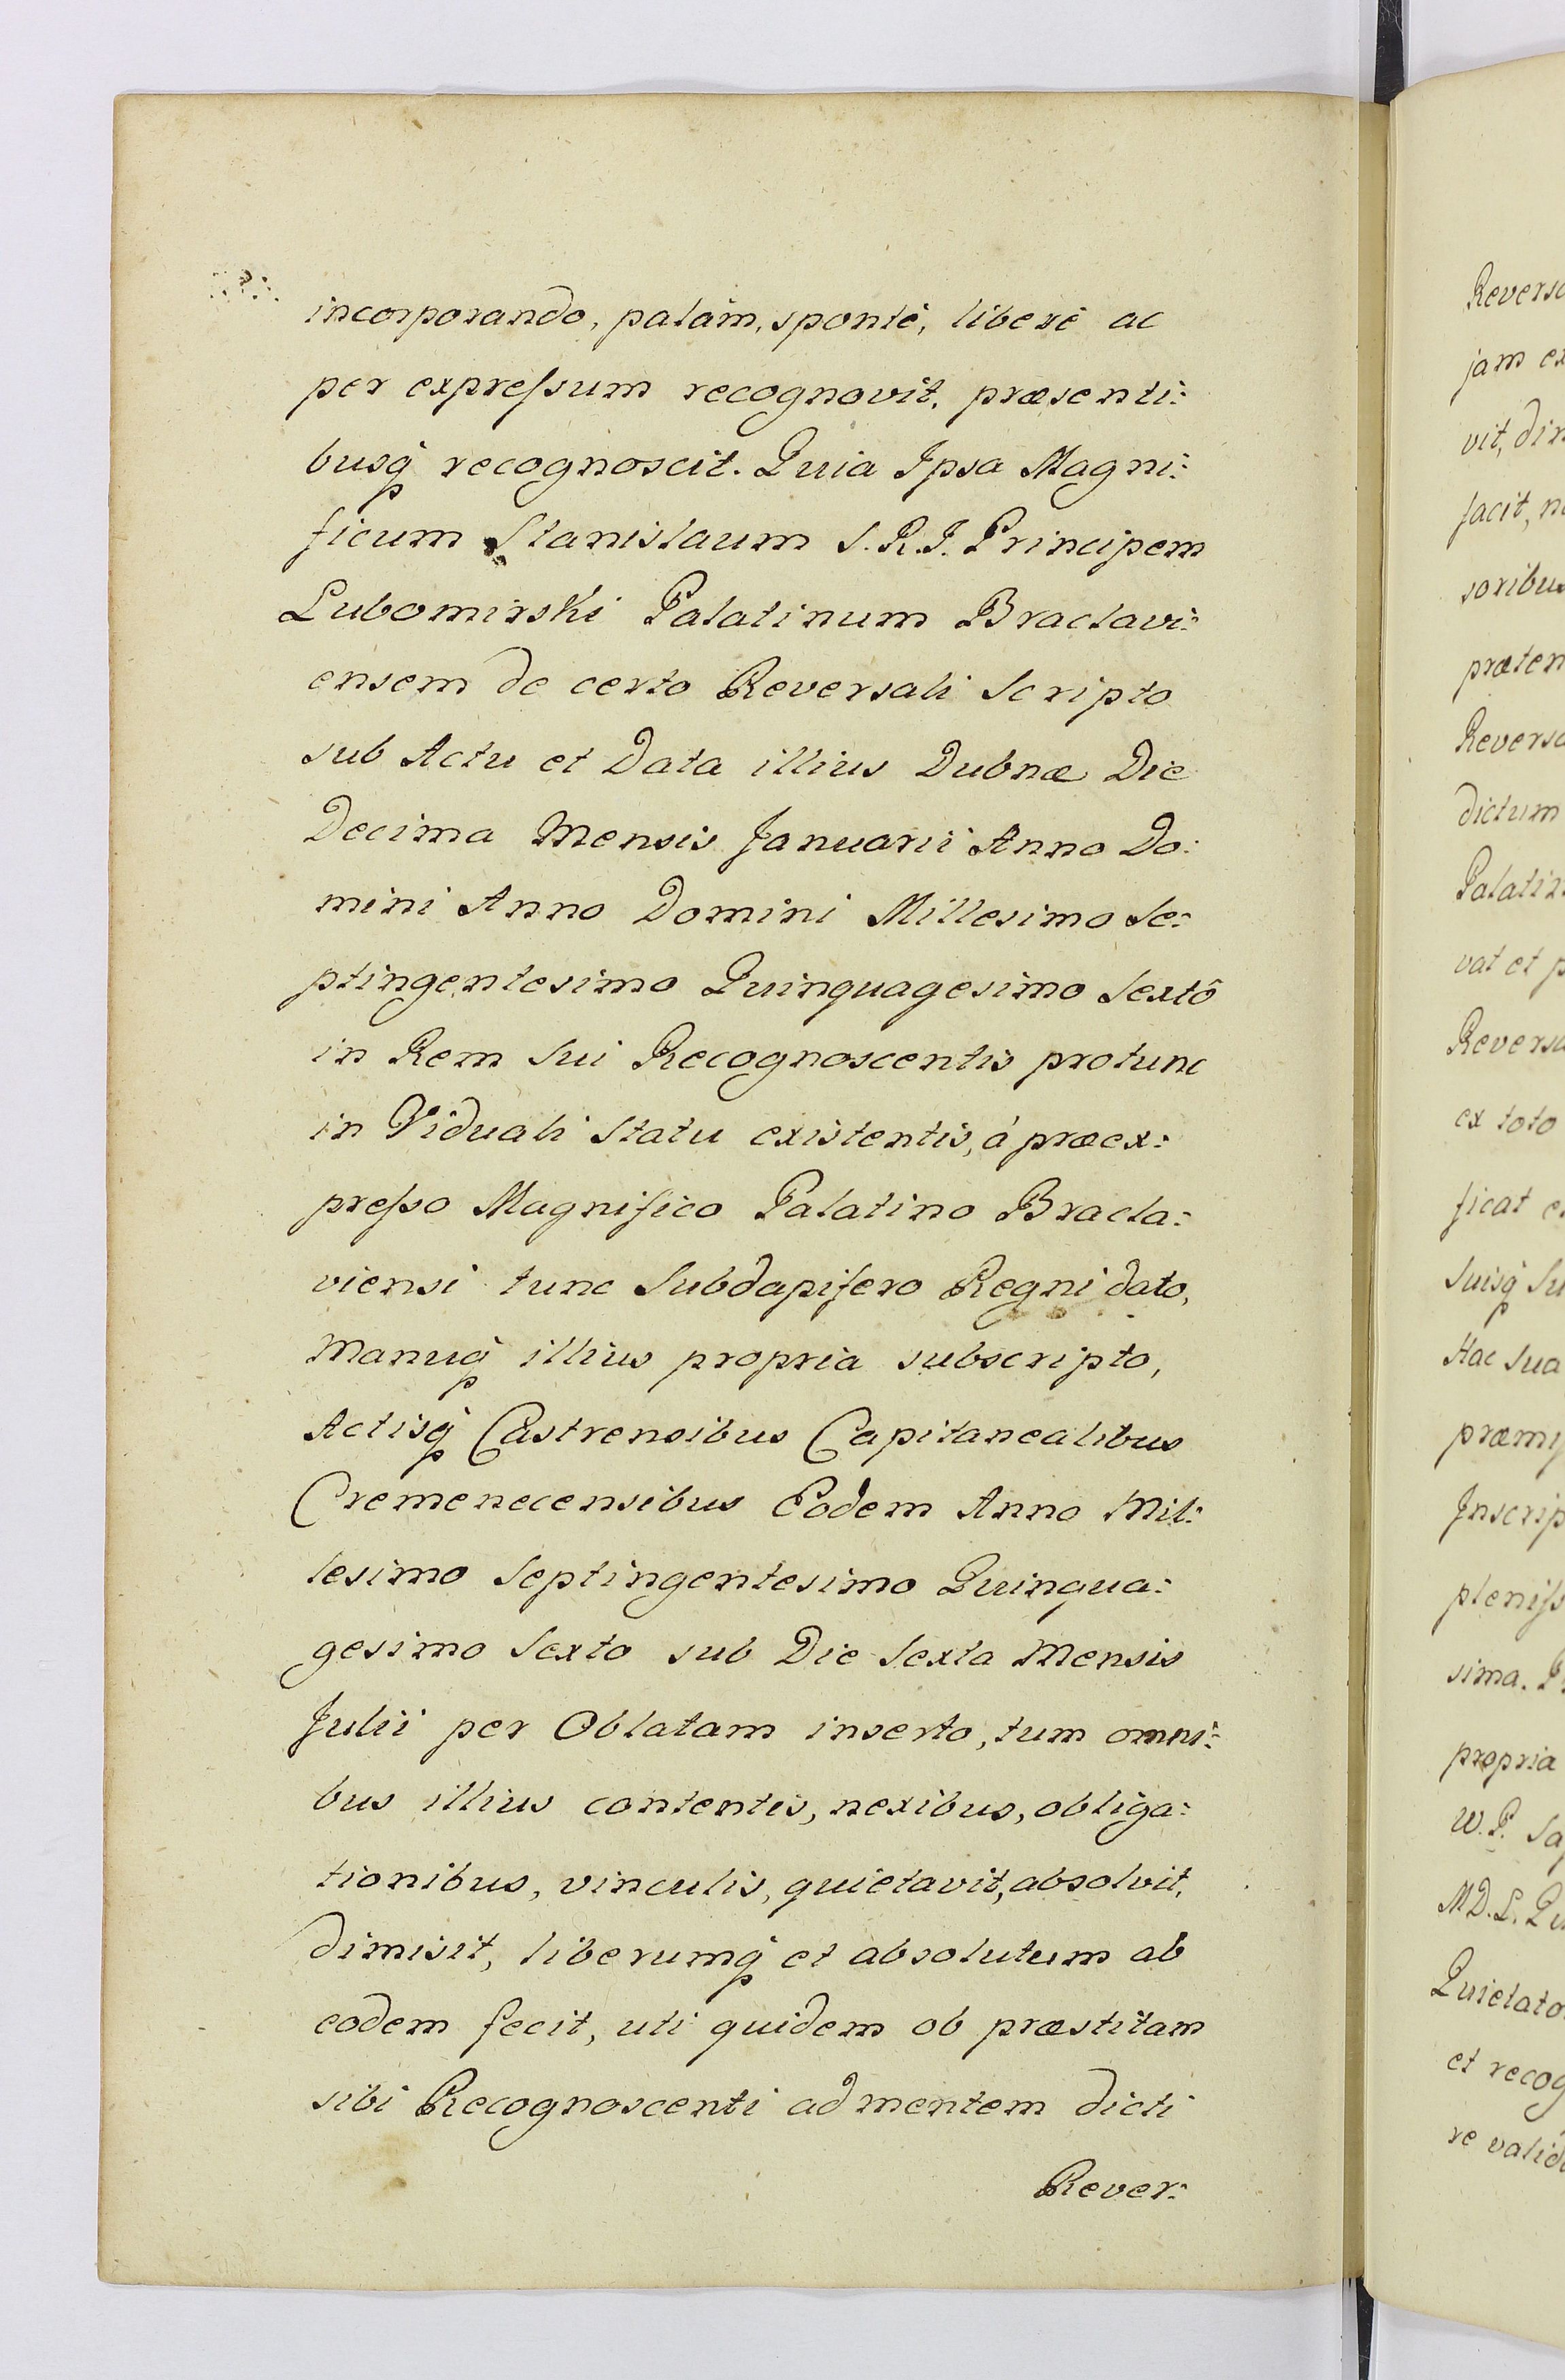 incorporando, palàm, spontè, liberè ac
per expreſsum recognovit, præsenti:
busq́ recognoscit. Quia Ipsa Magni:
ficum Stanislaum S. R. I. Principem
Lubomirski Palatinum Braclavi:
ensem de certo Reversali Scripto
sub Actu et Data illius Dubnæ Die
Decima Mensis Januarii Anno Do:
mini Anno Domini Millesimo Se:
ptingentesimo Quinquagesimo Sextô
in Rem Sui Recognoscentis protunc
in Viduali Statu existentis, à præex:
preſso Magnifico Palatino Bracla:
viensi tunc Subdapifero Regni dato,
Manuq́ illius propria subscripto,
Actisq́ Castrensibus Capitanealibus
Cremenecensibus Eodem Anno Mil:
lesimo Septingentesimo Quinqua:
gesimo Sexto sub Die Sexta Mensis
Julii per Oblatam inserto, tum omni:
bus illius contentis, nexibus, obliga:
tionibus, vinculis, quietavit, absolvit,
dimisit, liberumq́ et absolutum ab
eodem fecit, uti quidem ob præstitam
sibi Recognoscenti ad mentem dicti
Rever:
Reversa
jam ex
vit, dim
facit, n
soribus
præten
Reversa
dictum
Palatin
vat et p
Reversa
ex toto
ficat e
Suisq́ Su
Hac Sua
præmiſ
Inscrip
pleniſs
sima. P
propria
W. P. Sap
M D. L. Qu
Quietato
et recog
re valid